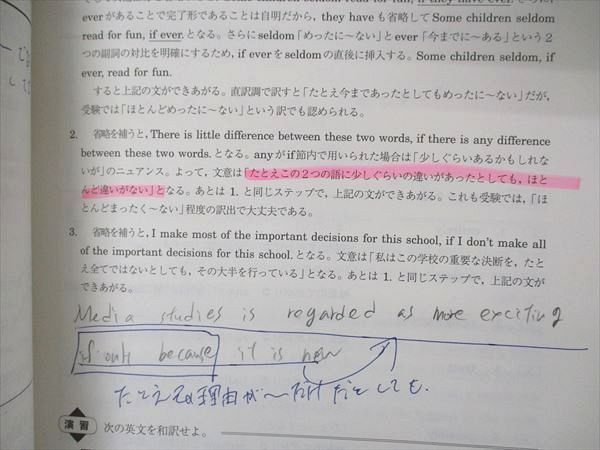 everがあることで完了形であることは自明だから, they haveも省略してSome children seldom
read for fun, if ever.となる。さらにseldom「めったに〜ない」とever「今までに〜ある」という2
つの副詞の対比を明確にするため, if everをseldomの直後に挿入する。Some children seldom, if
ever, read for fun.
すると上記の文ができあがる。直訳調で訳すと「たとえ今まであったとしてもめったに〜ない」だが,
受験では「ほとんどめったに〜ない」という訳でも認められる。
2. 省略を補うと, There is little difference between these two words, if there is any difference
between these two words.となる。anyがif節内で用いられた場合は「少しぐらいあるかもしれな
いが」のニュアンス。よって, 文意は「たとえこの2つの語に少しぐらいの違いがあったとしても, ほと
んど違いがない」となる。あとは1.と同じステップで, 上記の文ができあがる。これも受験では,「ほ
とんどまったく〜ない」程度の訳出で大丈夫である。
3. 省略を補うと, I make most of the important decisions for this school, if I don't make all
of the important decisions for this school.となる。文意は「私はこの学校の重要な決断を, たと
え全てではないとしても, その大半を行っている」となる。あとは1.と同じステップで, 上記の文が
できあがる。
Media studies is regarded as more exciting
if only because it is new
たとえその理由が〜だけだとしても.
演習 次の英文を和訳せよ。